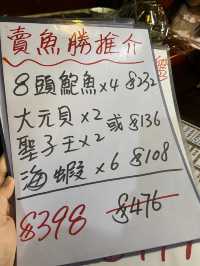 賣魚勝推介
8頭鮑魚×4 $232
大元貝×2
聖子王×2 或 $136
海蝦×6 $108
$398 $476